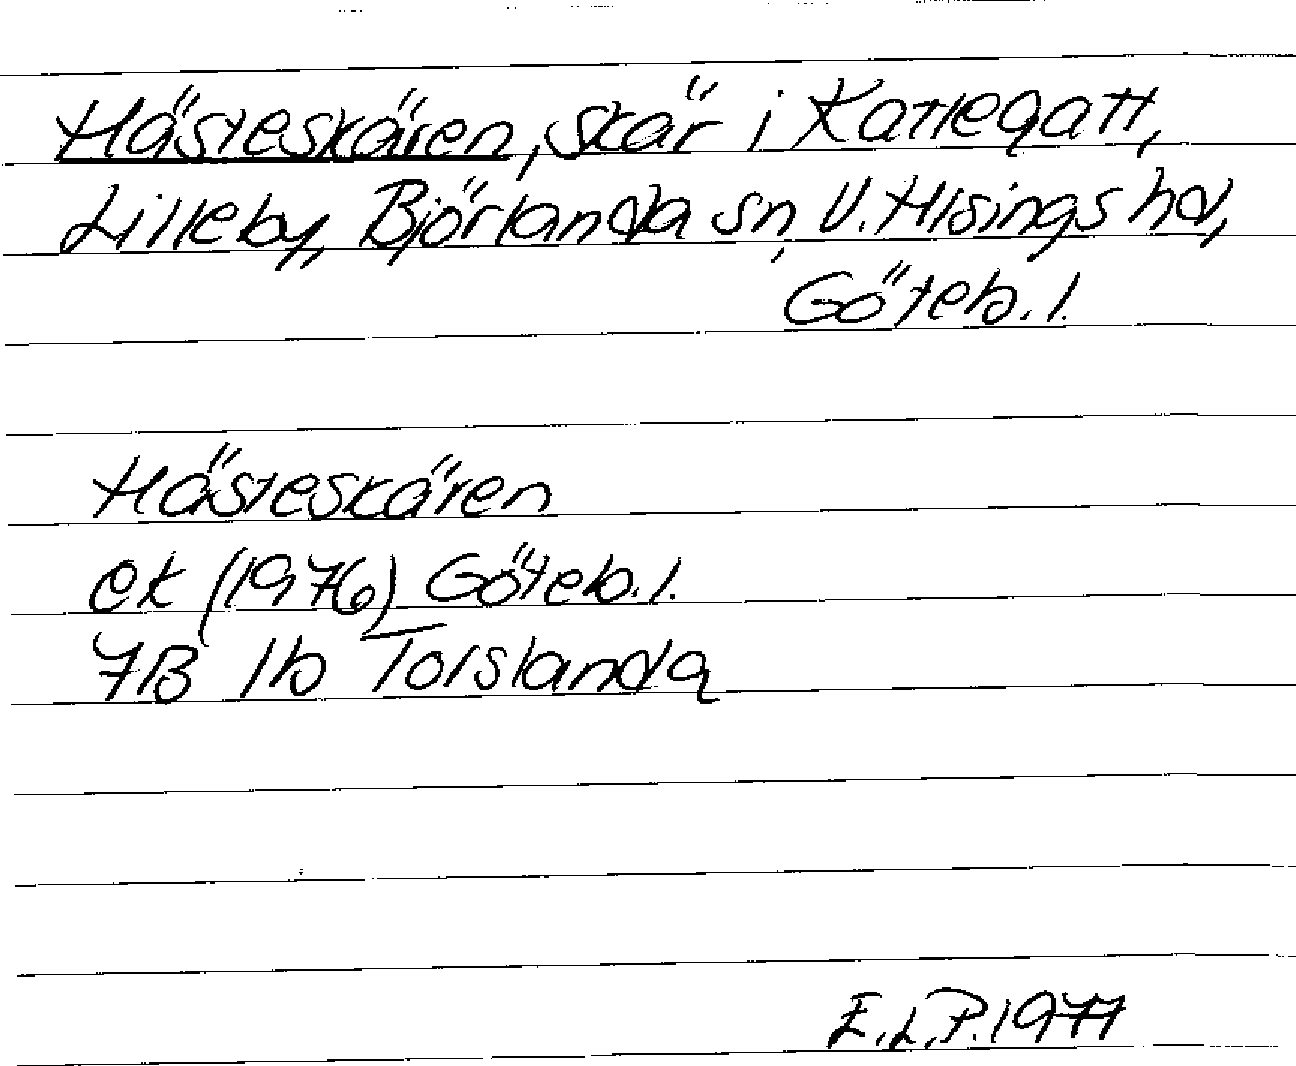 Hästeskären, skär i Kattegatt,
Lilleby, Björlanda sn, V. Hisings hd,
Göteb. l.
Hästeskären
ek (1976) Göteb. l.
7B 1b Torslanda
E.L.P. 1977